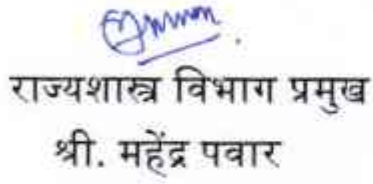 राज्यशास्त्र विभाग प्रमुख
श्री. महेंद्र पवार